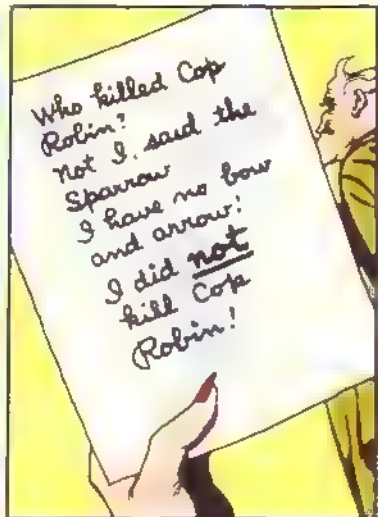 Who killed Cop
Robin?
Not I, said the
Sparrow
I have no bow
and arrow!
I did not
kill Cop
Robin!